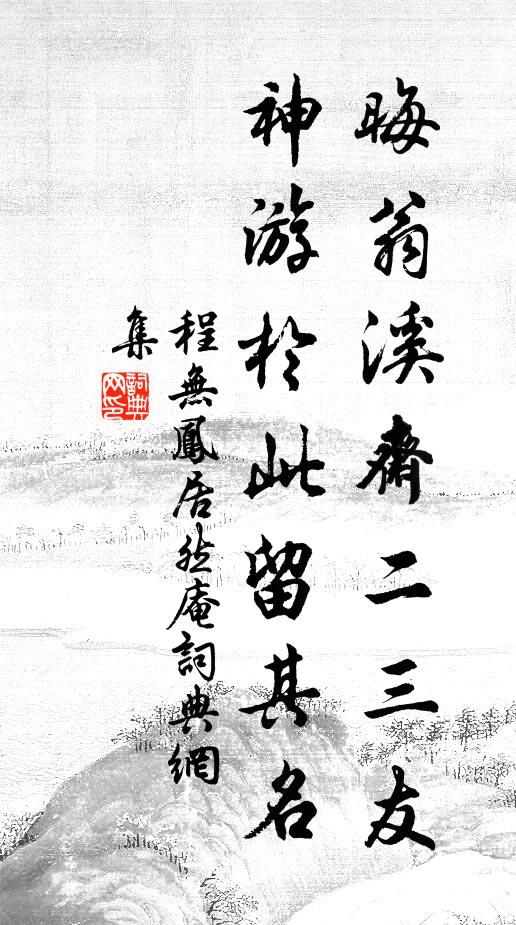 晦翁溪齋二三友
神游於此留其名
程無鳳居然庵詞典網
集
詞典網印